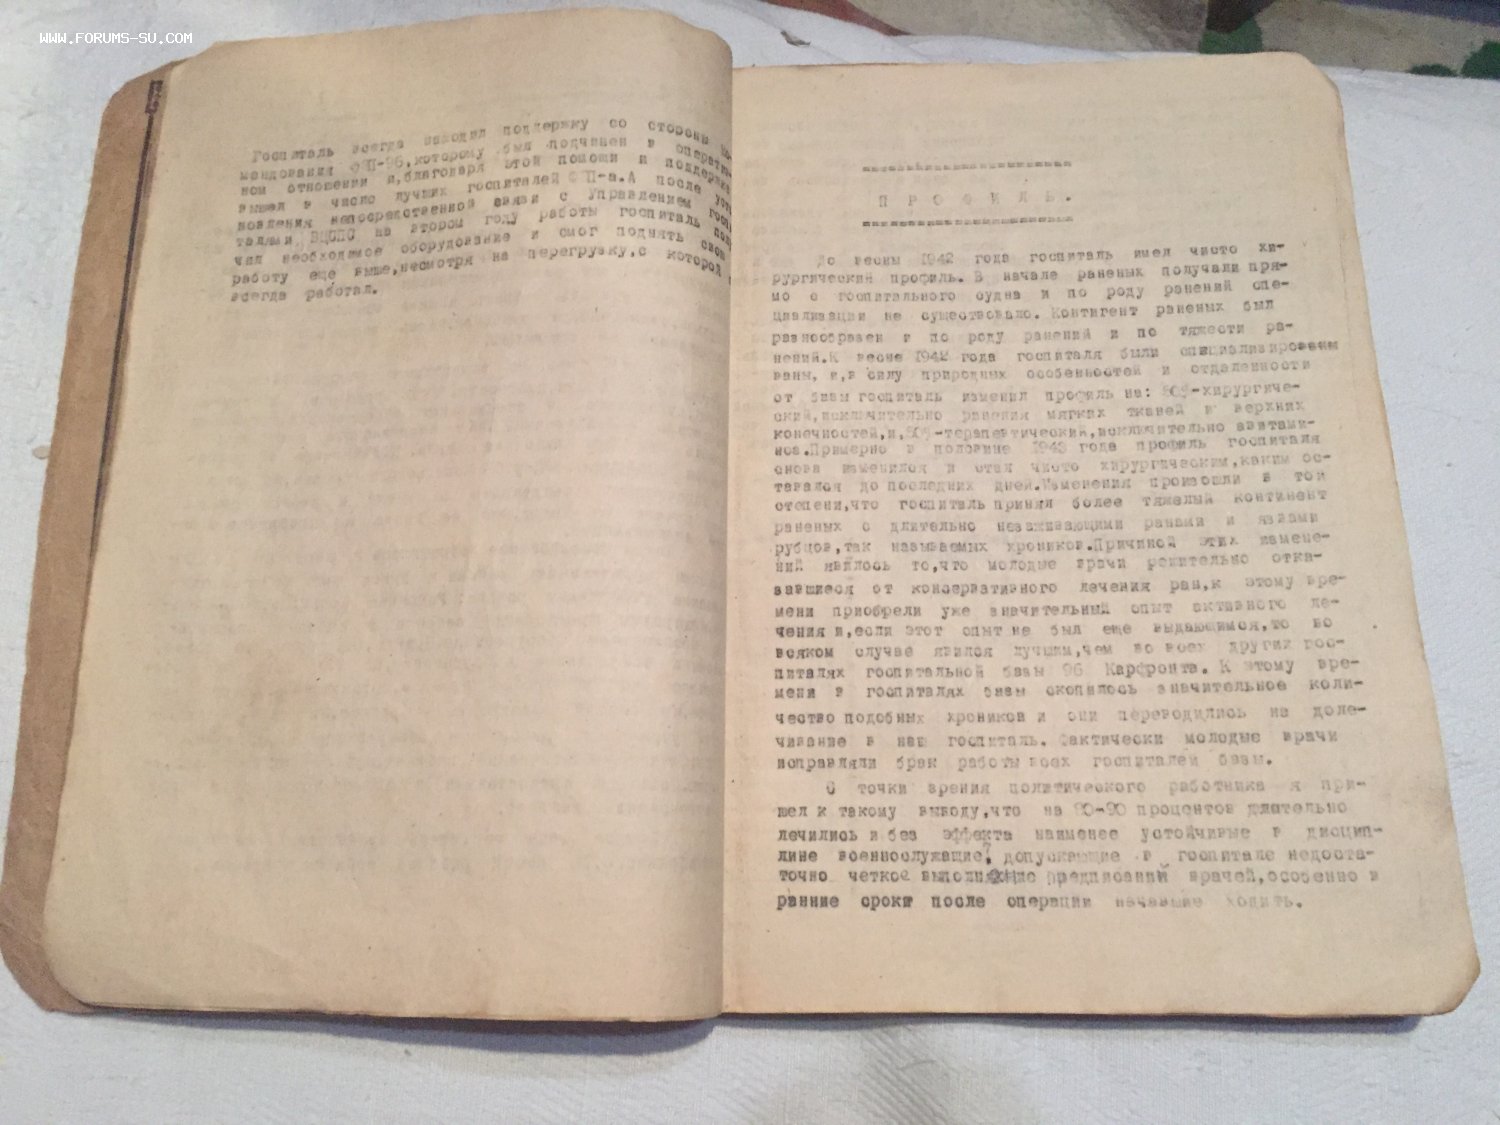 WWW.FORUMS-SU.COM
Госпиталь всегда находил поддержку со стороны ко-
мандования ФЭП-96, которому был подчинен в оператив-
ном отношении и, благодаря этой помощи и поддержке
вышел в число лучших госпиталей ФЭП-а. А после уста-
новления непосредственной связи с Управлением госпи-
талями ВЦСПС на втором году работы госпиталь полу-
чил необходимое оборудование и смог поднять свою
работу еще выше, несмотря на перегрузку, с которой
всегда работал.
ПРОФИЛЬ.
До весны 1942 года госпиталь имел чисто хи-
рургический профиль. В начале раненых получали пря-
мо с госпитального судна и по роду ранений спе-
циализации не существовало. Контигент раненых был
разнообразен и по роду ранений и по тяжести ра-
нений. К весне 1942 года госпиталя были специализированы
ваны, и, в силу природных особенностей и отдаленности
от базы госпиталь изменил профиль на: -хирургиче-
ский, исключительно ранения мягких тканей и верхних
конечностей, и, -терапевтический, исключительно авитами-
ноз. Примерно в половине 1943 года профиль госпиталя
снова изменился и стал чисто хирургическим, каким ос-
тавался до последних дней. Изменения произошли в той
степени, что госпиталь принял более тяжелый контигент
раненых с длительно незаживающими ранами и язвами
рубцов, так называемых хроников. Причиной этих измене-
ний явилось то, что молодые врачи решительно отка-
завшиеся от консервативного лечения ран, к этому вре-
мени приобрели уже значительный опыт активного ле-
чения и, если этот опыт не был еще выдающимся, то во
всяком случае явился лучшим, чем во всех других гос-
питалях госпитальной базы 96 Карфронта. К этому вре-
мени в госпиталях базы скопилось значительное коли-
чество подобных хроников и они переводились на доле-
чивание в наш госпиталь. Фактически молодые врачи
исправляли брак работы всех госпиталей базы.
С точки зрения политического работника я при-
шел к такому выводу, что на 80-90 процентов длительно
лечились и без эффекта наименее устойчивые в дисцип-
лине военнослужащие, допускающие в госпитале недоста-
точно четкое выполнение предписаний врачей, особенно в
ранние сроки после операции начавшие ходить.